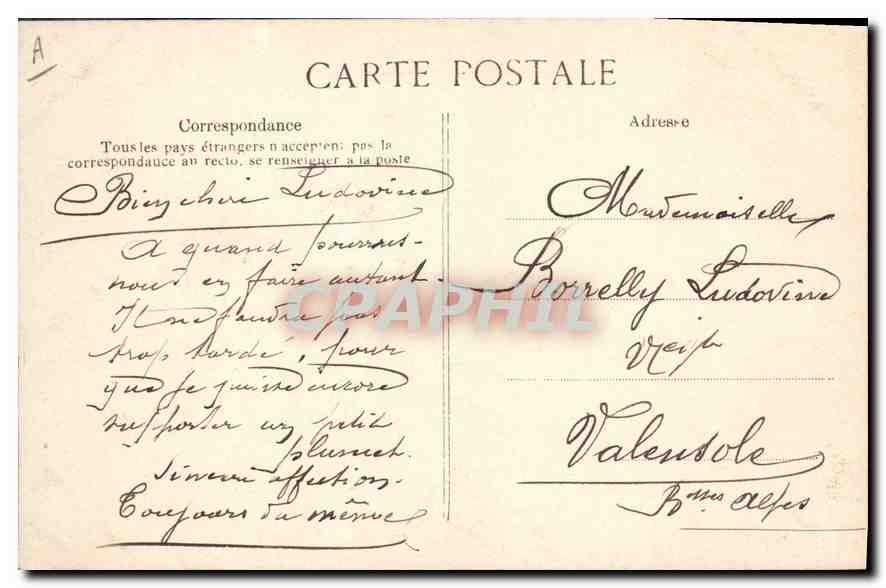 A
CARTE POSTALE
Correspondance
Tous les pays étrangers n'acceptent pas la
correspondance au recto, se renseigner à la poste
Adresse
Bien chère Ludovine
A quand pourrons-
nous en faire autant.
Il ne faudra pas
trop tardé, pour
que je puisse encore
supporter un petit
plumet.
Sincère affection.
Toujours du même
Mademoiselle
Borrelly Ludovine
Valensole
Bsses Alpes
CPAPHIL